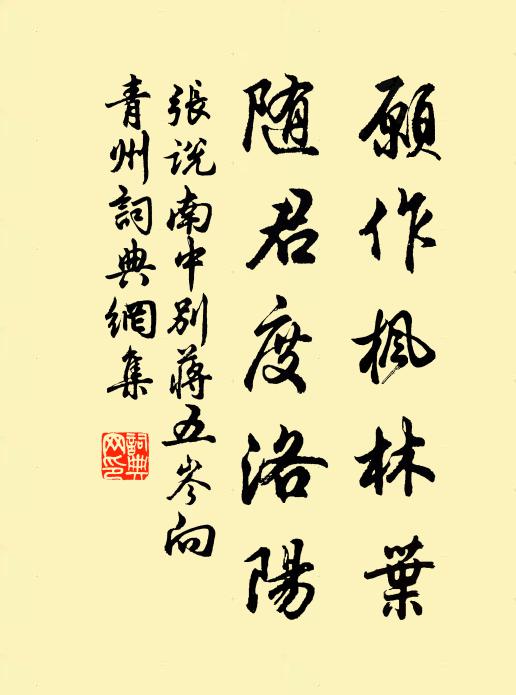 願作楓林葉
随君度洛陽
張說南中別蔣五岑向
青州詞典網集
詞典网印